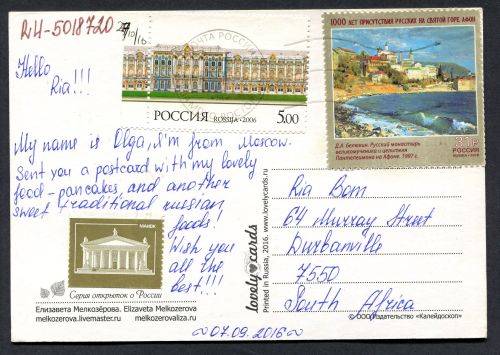 RU-5018720
Hello
Ria!!!
ПОЧТА РОССИИ
РОССИЯ ROSSIJA • 2006 5.00
1000 ЛЕТ ПРИСУТСТВИЯ РУССКИХ НА СВЯТОЙ ГОРЕ АФОН
Д.А. Белюкин. Русский монастырь
великомученика и целителя
Пантелеимона на Афоне. 1997 г.
РОССИЯ
My name is Olga, I'm from Moscow.
Sent you a postcard with my lovely
food - pancakes, and another
sweet traditional russian
foods!
Wish you
all the
best!!!
МАНЕЖ
Серия открыток о России
Елизавета Мелкозёрова. Elizaveta Melkozerova
melkozerova.livemaster.ru melkozerovaliza.ru
lovely cards
www.lovelycards.ru
Printed in Russia, 2016.
Ria Bom
64 Murray Street
Durbanville
7550
South Africa
~07.09.2016~
© ООО "Издательство «Калейдоскоп»